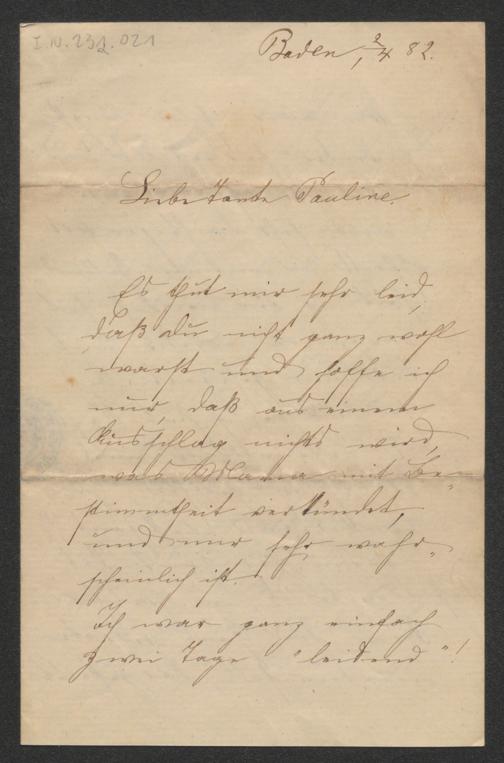 I.N. 232.021
Baden, 2/4 82.
Liebe Tante Pauline.
Es thut mir sehr leid,
daß Du nicht ganz wohl
warst und hoffe ich
nur, daß aus einem
Ausschlag nichts wird,
was Mama mit Be-
stimmtheit verkündet,
und mir sehr wahr-
scheinlich ist.
Ich war ganz einfach
zwei Tage "leidend"!